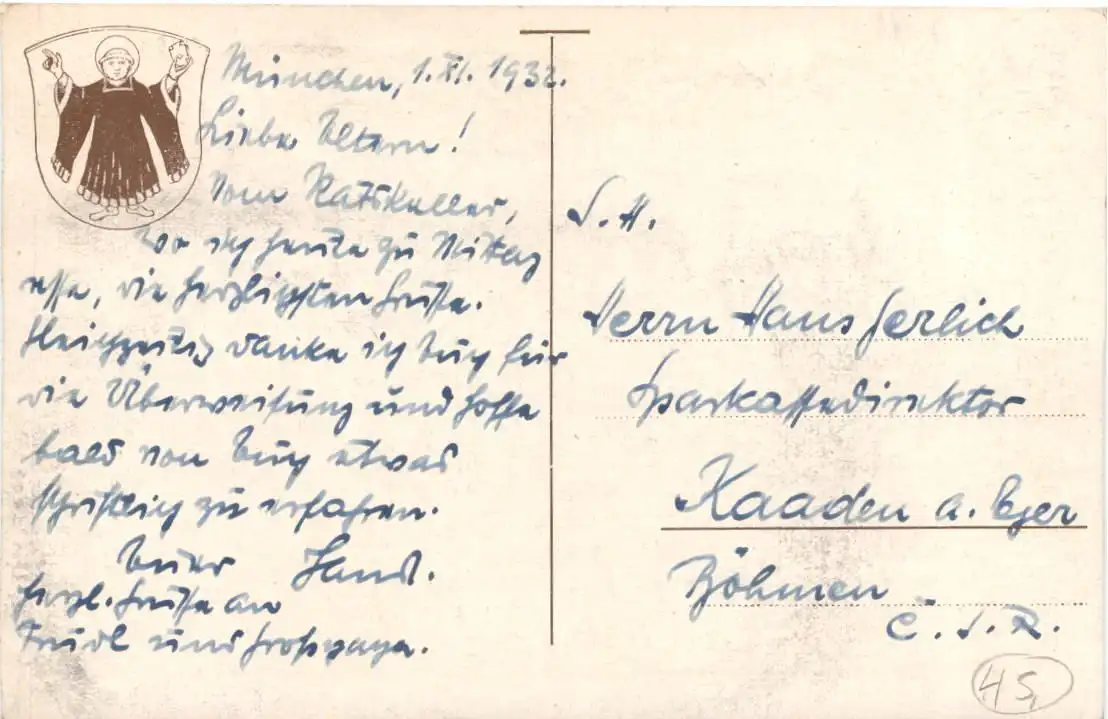 München, 1. XI. 1932.
Liebe Eltern!
Vom Ratskeller,
wo ich heute zu Mittag
esse, die herzlichsten Grüße.
Gleichzeitig danke ich Euch für
die Überweisung und hoffe
bald von Euch etwas
schriftlich zu erfahren.
Euer Hans.
Herzl. Grüße an
Trudl und Großpapa.
S. H.
Herrn Hans Gerlich
Sparkassedirektor
Kaaden a. Eger
Böhmen
Č.S.R.
45